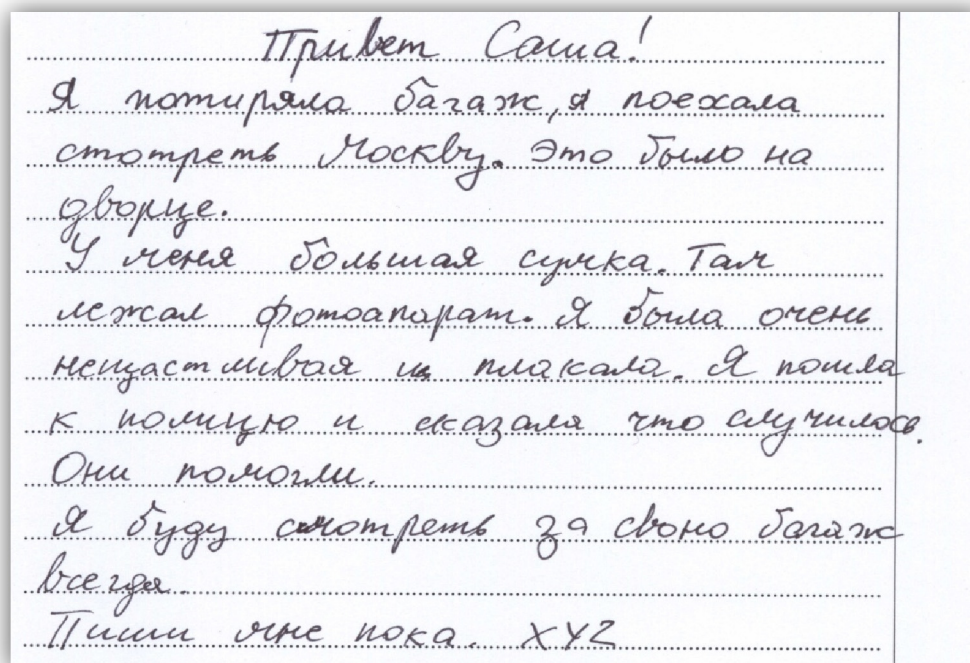 Привет Саша!
Я потиряла багаж, я поехала
смотреть Москву. Это было на
дворце.
У меня большая сумка. Там
лежал фотоапарат. Я была очень
нещастливая и плакала. Я пошла
к полицю и сказала что случилось.
Они помогли.
Я буду смотреть за свою багаж
всегда.
Пиши мне пока. XYZ